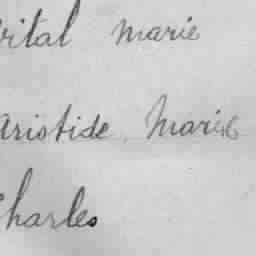 Vital marie
Aristide Marie
Charles